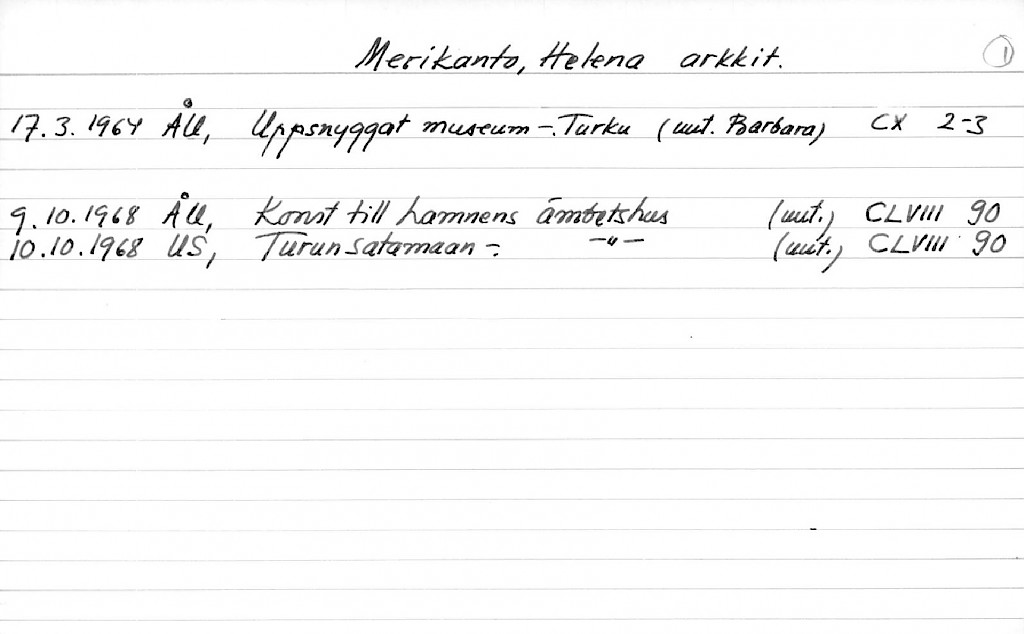 Merikanto, Helena arkkit. 1
17.3.1964 ÅU, Uppsnyggat museum -. Turku (uut. Barbara) CX 2-3
9.10.1968 ÅU, Konst till hamnens ämbetshus (uut.) CLVIII 90
10.10.1968 US, Turun satamaan -. -"- (uut.) CLVIII 90